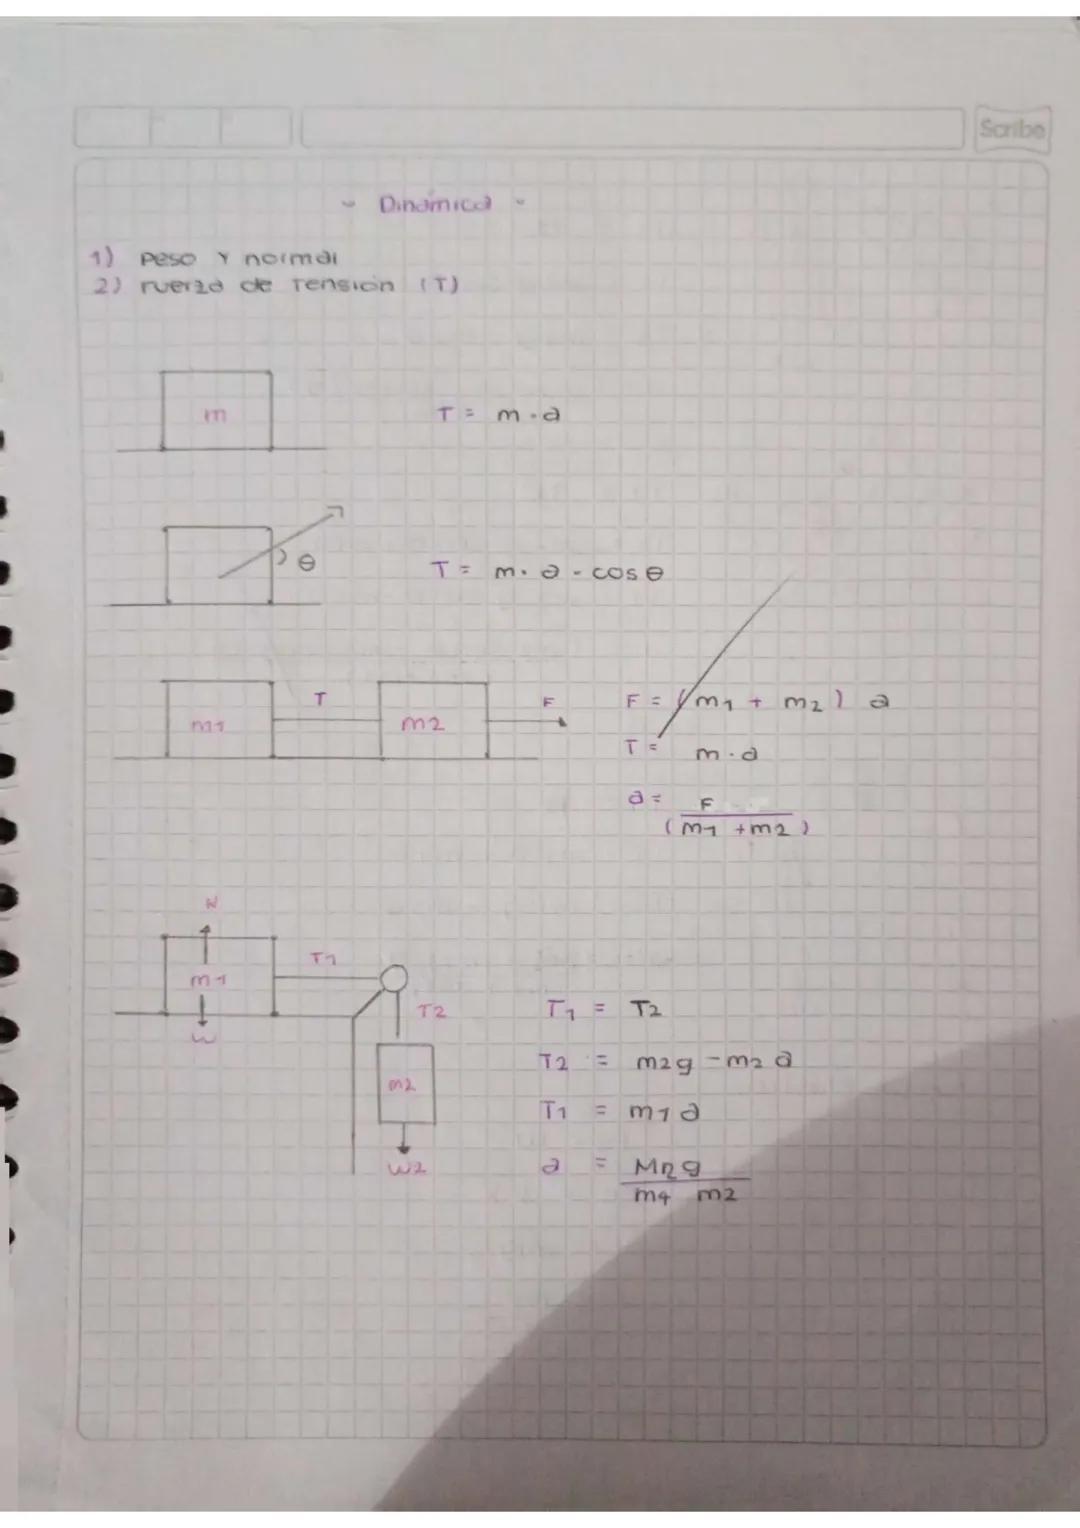 Scribe
Dinámica
1) Peso y normal
2) Fuerza de Tensión (T)
m
T = m · a
θ
T = m · a · cos θ
m1
T
m2
F
F = (m1 + m2) a
T = m · a
a = F
(m1 + m2)
N
m1
W
T1
T2
m2
W2
T1 = T2
T2 = m2g - m2 a
T1 = m1 a
a =
m2